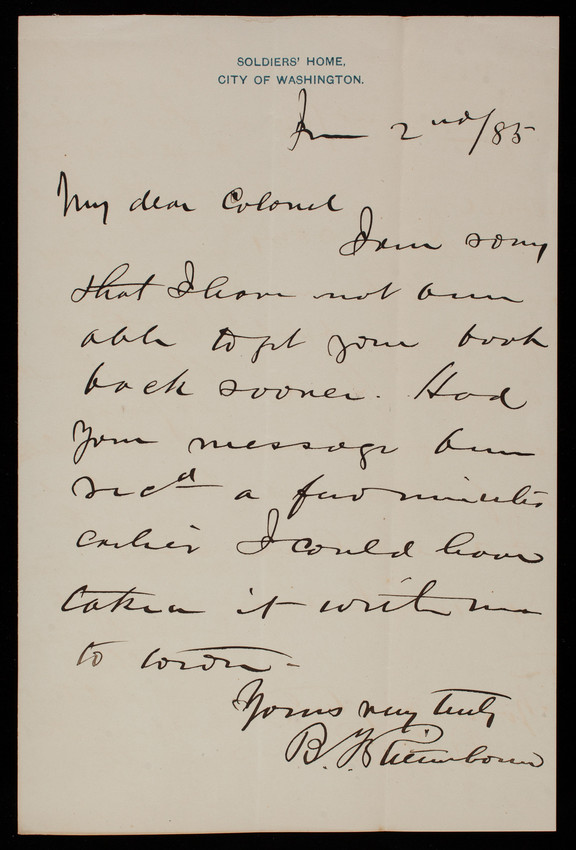 SOLDIERS' HOME,
CITY OF WASHINGTON.
2nd/85
My dear Colonel
I am sorry
that I have not been
able to get your book
back sooner. Had
your message been
recd a few minutes
earlier I could have
taken it with me
to town-
Yours very truly
B. F. Rittenhouse